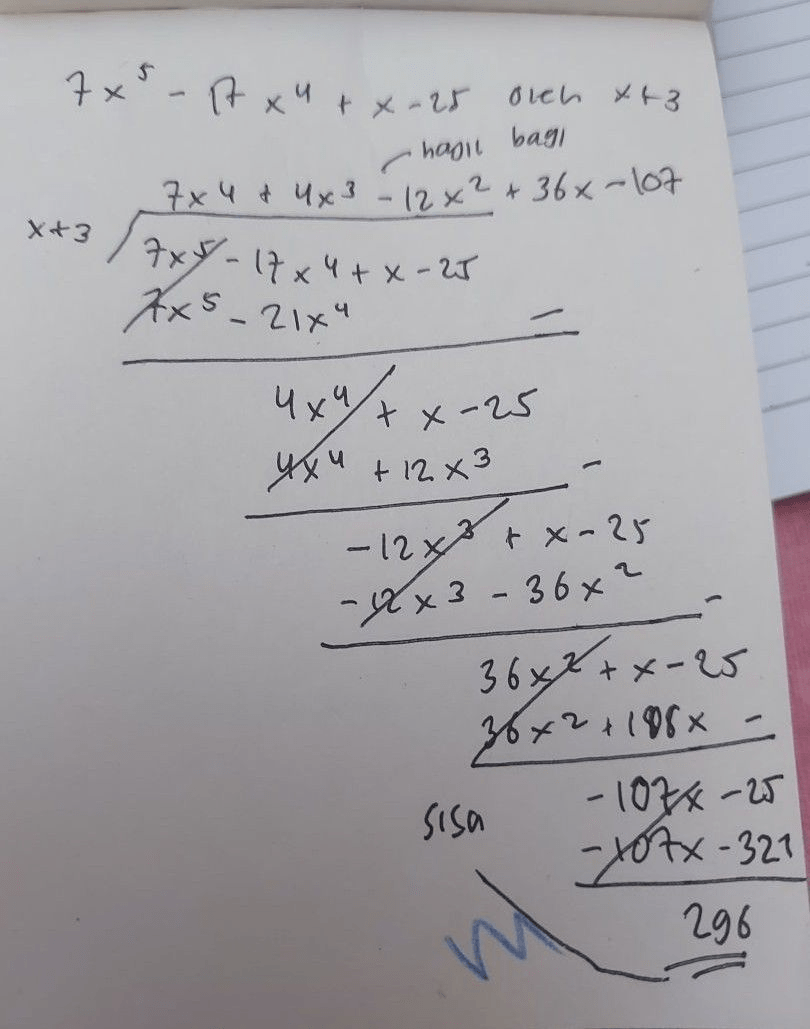 7x⁵ - 17x⁴ + x - 25 oleh x+3
hasil bagi
7x⁴ + 4x³ - 12x² + 36x - 107
x+3
7x⁵ - 17x⁴ + x - 25
7x⁵ - 21x⁴ -
4x⁴ + x - 25
4x⁴ + 12x³ -
-12x³ + x - 25
-12x³ - 36x² -
36x² + x - 25
36x² + 108x -
-107x - 25
sisa
-107x - 321
296